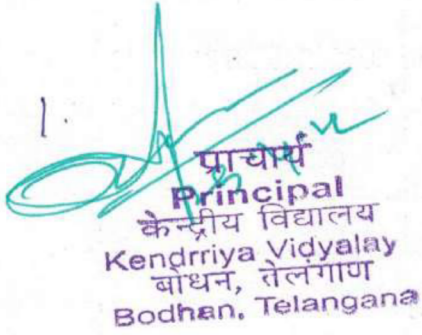 1.
प्राचार्य
Principal
केन्द्रीय विद्यालय
Kendrriya Vidyalay
बोधन, तेलंगाण
Bodhan, Telangana